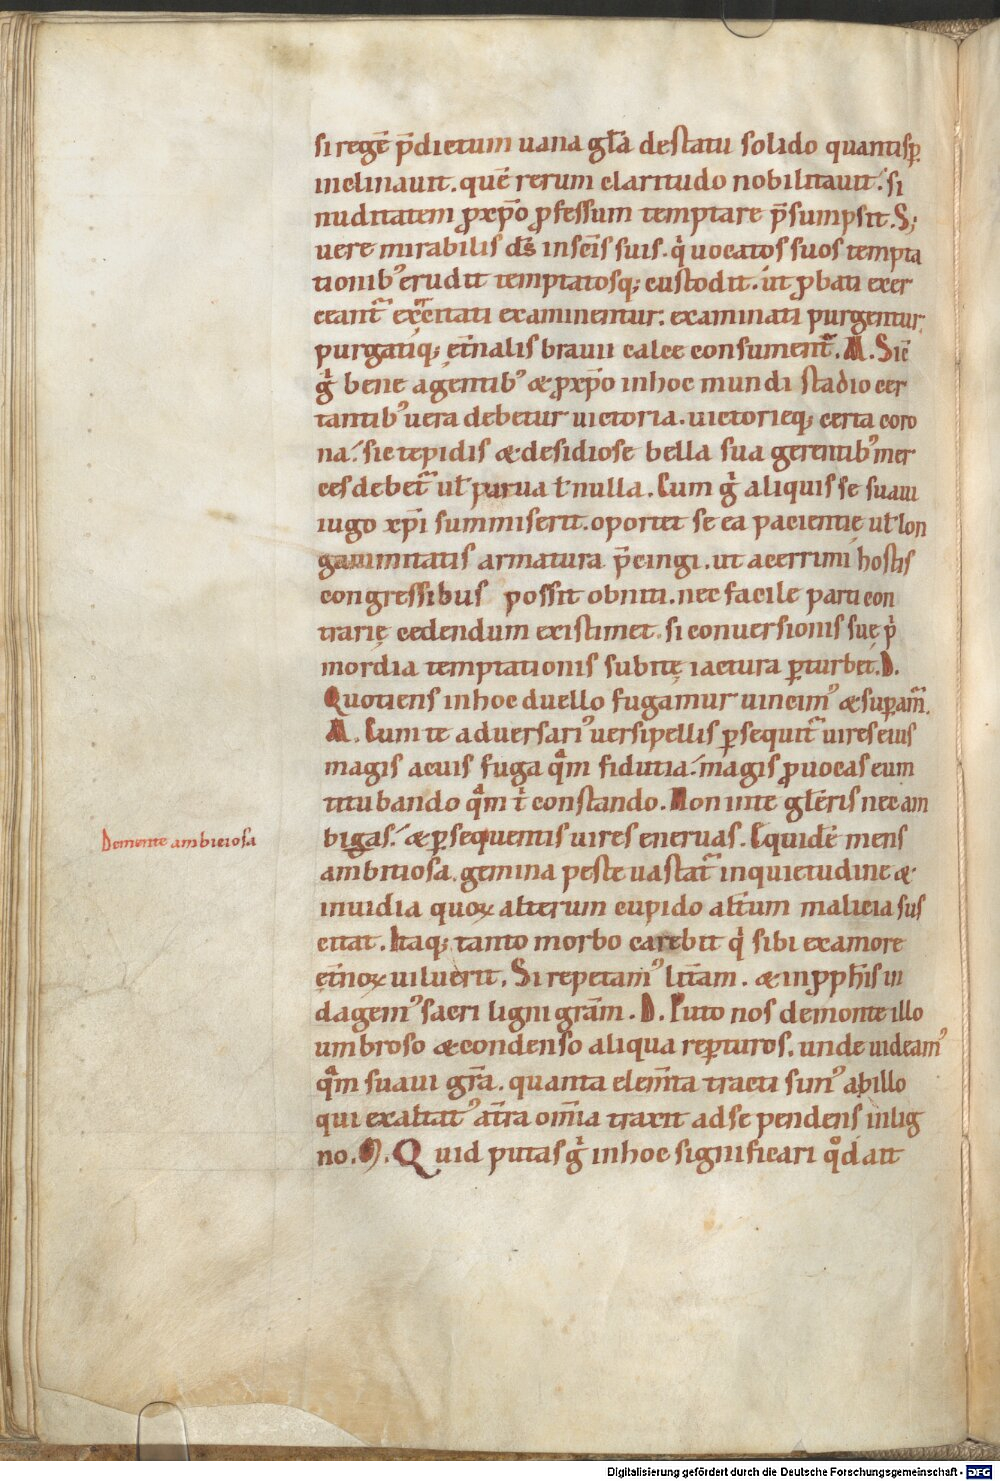 si regē p̄dictum uana gl̄a destatu solido quantisꝑ
inclinauit. quē rerum claritudo nobilitauit. si
nuditatem ꝓ xp̄o ꝓfessum temptare p̄sumpsit. S;
uere mirabilis ds̄ insc̄is suis. qͥ uocatos suos tempta
tionibꝰ erudit temptatosq; custodit. ut ꝓbati exer
ceant᷑ exercitati examinentur. examinati purgentur
purgatiq; et̄nalis brauii calce consument᷑. M. Sic̄
gͥ bene agentibꝰ & ꝓ xp̄o inhoc mundi stadio cer
tantibꝰ uera debetur uictoria. uictorieq; certa coro
na. sic tepidis & desidiose bella sua gerentibꝰ mer
ces debet᷑ ul̄ parua l̄ nulla. Cum gͥ aliquis se suaui
iugo xp̄i summiserit. oportet se ea pacientię ul̄ lon
gaminitatis armatura p̄cingi. ut acerrimi hostis
congressibus possit obniti. nec facile parti con
trarię cedendum existimet. si conuersionis suę pͥ
mordia temptationis subitę iactura ꝑturbet. D.
Quotiens inhoc duello fugamur uincimꝰ & suꝑam᷑.
M. Cum te aduersariꝰ uersipellis ꝑsequit᷑ uires eius
magis acuis fuga qͣm fidutia. magis ꝓuocas eum
titubando qͣm ī constando. Non inte gl̄eris nec am
bigas. & ꝑsequentis uires eneruas. Equidē mens
Demente ambiciosa
ambitiosa. gemina peste uastat᷑ inquietudine &
inuidia quoꝝ alterum cupido al̄tum malicia sus
citat. Itaq; tanto morbo carebit qͥ sibi examore
et̄noꝝ uiluerit. Si repetamꝰ lit̄am. & inpph̄is in
dagemꝰ sacri ligni gr̄am. D. Puto nos demonte illo
umbroso & condenso aliqua reꝑturos. unde uideamꝰ
qͣm suaui gr̄a. quanta elem̄ta tracti sunꝰ abillo
qui exaltatꝰ at̄ra om̄ia traxit adse pendens inlig
no. M. Quid putas gͥ inhoc significari qͦd ait
Digitalisierung gefördert durch die Deutsche Forschungsgemeinschaft - DFG